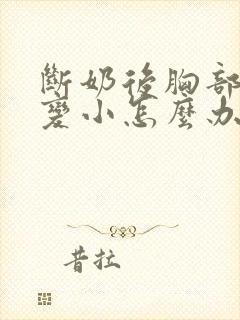 斷奶後胸部
變小怎麼办
昔拉